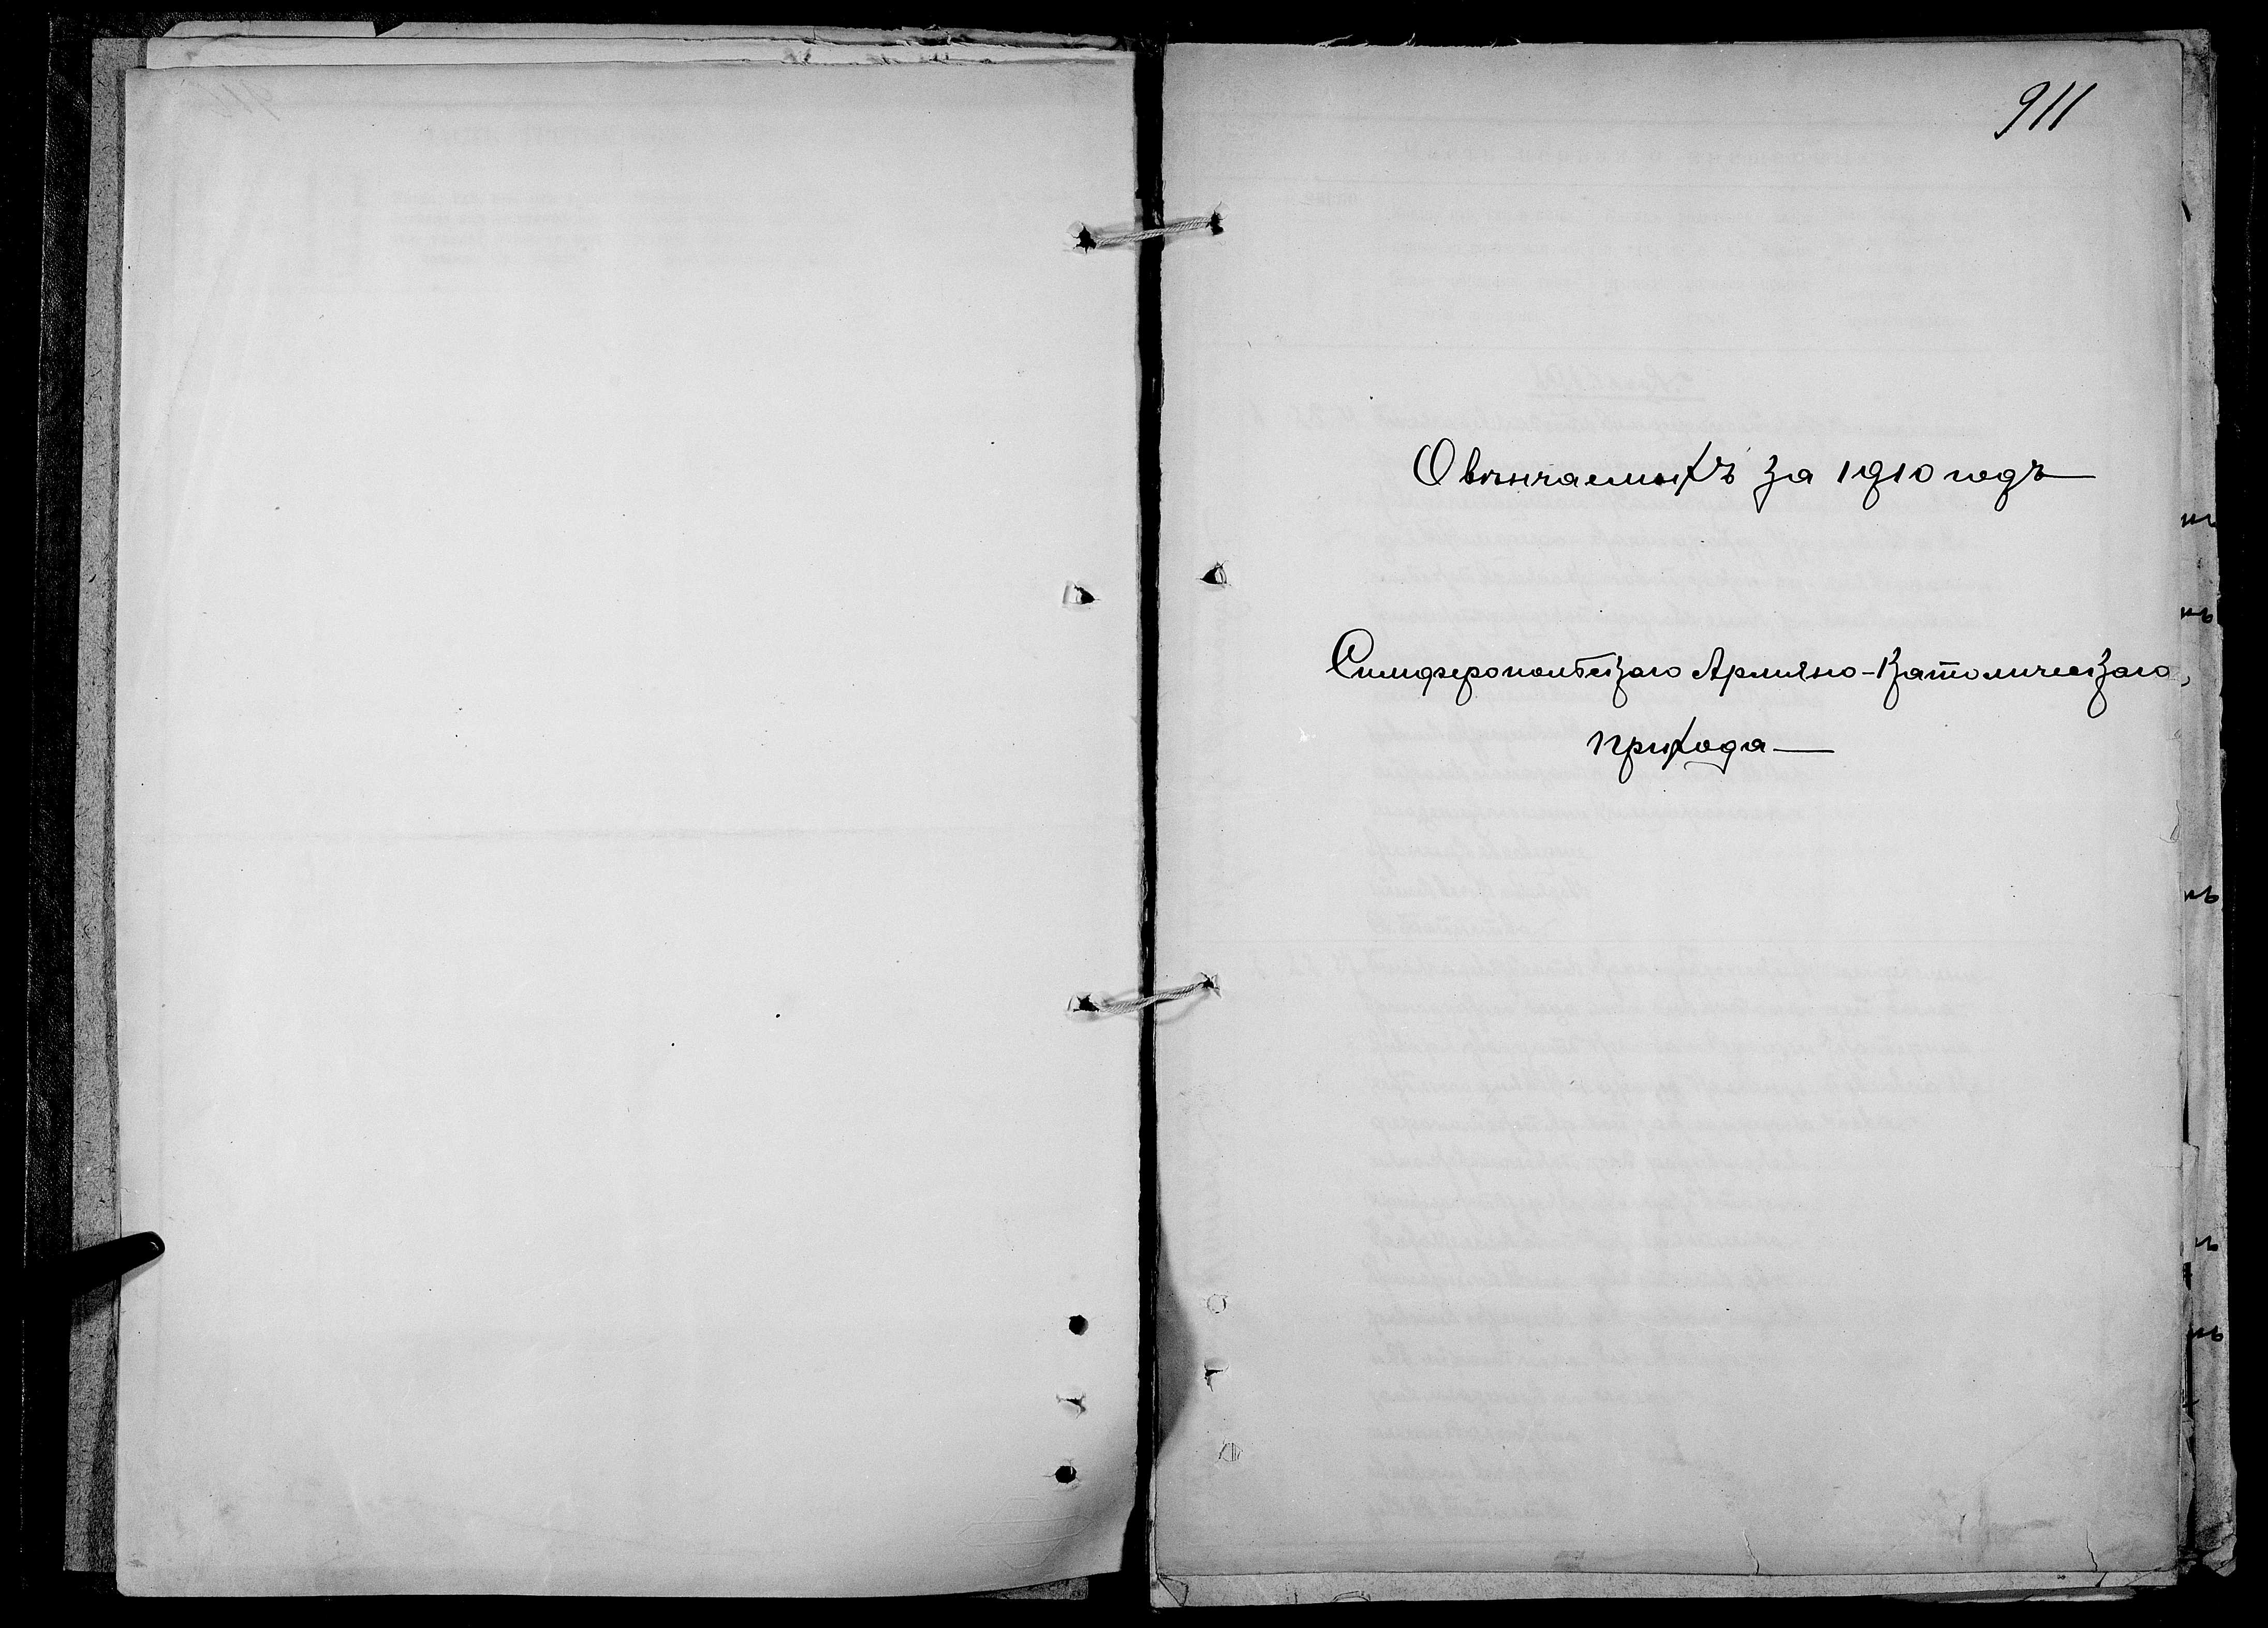 911
Овѣнчаемыхъ за 1910 годъ
Симферопольскаго Армяно-Католическаго
прихода